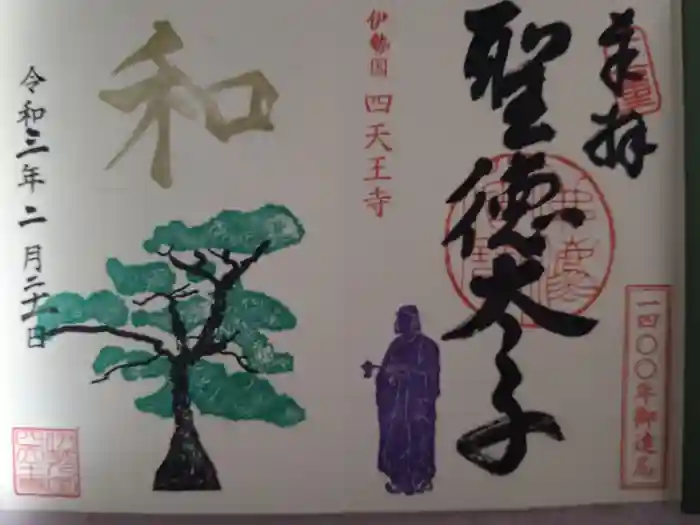 奉拝
聖徳太子
一四〇〇年御遠忌
伊勢国 四天王寺
和
令和三年二月二十一日